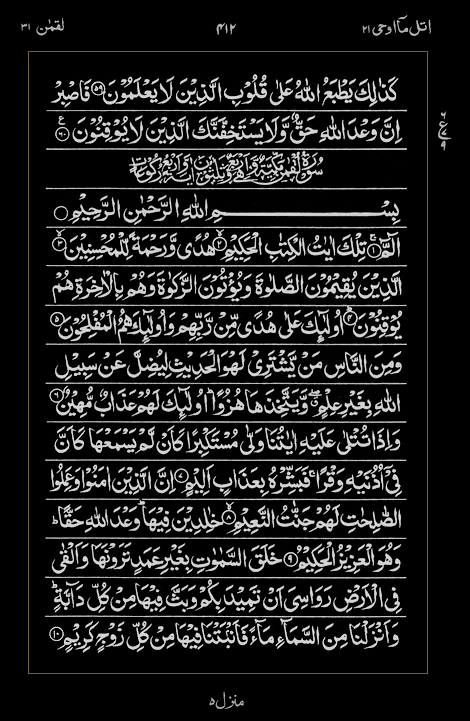 اتل مآ اوحی ٢١ ٤١٢ لقمٰن ٣١
كَذٰلِكَ يَطْبَعُ اللّٰهُ عَلٰى قُلُوْبِ الَّذِيْنَ لَا يَعْلَمُوْنَ ﴿٥٩﴾ فَاصْبِرْ
اِنَّ وَعْدَ اللّٰهِ حَقٌّ وَّلَا يَسْتَخِفَّنَّكَ الَّذِيْنَ لَا يُوْقِنُوْنَ ﴿٦٠﴾
٦
ع
٩
سُوْرَةُ لُقْمٰنَ مَكِّيَّةٌ وَّهِيَ اَرْبَعٌ وَّثَلٰثُوْنَ اٰيَةً وَّاَرْبَعُ رُكُوْعَاتٍ
بِسْمِ اللّٰهِ الرَّحْمٰنِ الرَّحِيْمِ
الٓمّٓ ﴿١﴾ تِلْكَ اٰيٰتُ الْكِتٰبِ الْحَكِيْمِ ﴿٢﴾ هُدًى وَّرَحْمَةً لِّلْمُحْسِنِيْنَ ﴿٣﴾
الَّذِيْنَ يُقِيْمُوْنَ الصَّلٰوةَ وَيُؤْتُوْنَ الزَّكٰوةَ وَهُمْ بِالْاٰخِرَةِ هُمْ
يُوْقِنُوْنَ ﴿٤﴾ اُولٰٓئِكَ عَلٰى هُدًى مِّنْ رَّبِّهِمْ وَاُولٰٓئِكَ هُمُ الْمُفْلِحُوْنَ ﴿٥﴾
وَمِنَ النَّاسِ مَنْ يَّشْتَرِيْ لَهْوَ الْحَدِيْثِ لِيُضِلَّ عَنْ سَبِيْلِ
اللّٰهِ بِغَيْرِ عِلْمٍ وَّيَتَّخِذَهَا هُزُوًا اُولٰٓئِكَ لَهُمْ عَذَابٌ مُّهِيْنٌ ﴿٦﴾
وَاِذَا تُتْلٰى عَلَيْهِ اٰيٰتُنَا وَلّٰى مُسْتَكْبِرًا كَاَنْ لَّمْ يَسْمَعْهَا كَاَنَّ
فِيْٓ اُذُنَيْهِ وَقْرًا فَبَشِّرْهُ بِعَذَابٍ اَلِيْمٍ ﴿٧﴾ اِنَّ الَّذِيْنَ اٰمَنُوْا وَعَمِلُوا
الصّٰلِحٰتِ لَهُمْ جَنّٰتُ النَّعِيْمِ ﴿٨﴾ خٰلِدِيْنَ فِيْهَا وَعْدَ اللّٰهِ حَقًّا
وَهُوَ الْعَزِيْزُ الْحَكِيْمُ ﴿٩﴾ خَلَقَ السَّمٰوٰتِ بِغَيْرِ عَمَدٍ تَرَوْنَهَا وَاَلْقٰى
فِي الْاَرْضِ رَوَاسِيَ اَنْ تَمِيْدَ بِكُمْ وَبَثَّ فِيْهَا مِنْ كُلِّ دَآبَّةٍ
وَاَنْزَلْنَا مِنَ السَّمَآءِ مَآءً فَاَنْۢبَتْنَا فِيْهَا مِنْ كُلِّ زَوْجٍ كَرِيْمٍ ﴿١٠﴾
منزل ٥